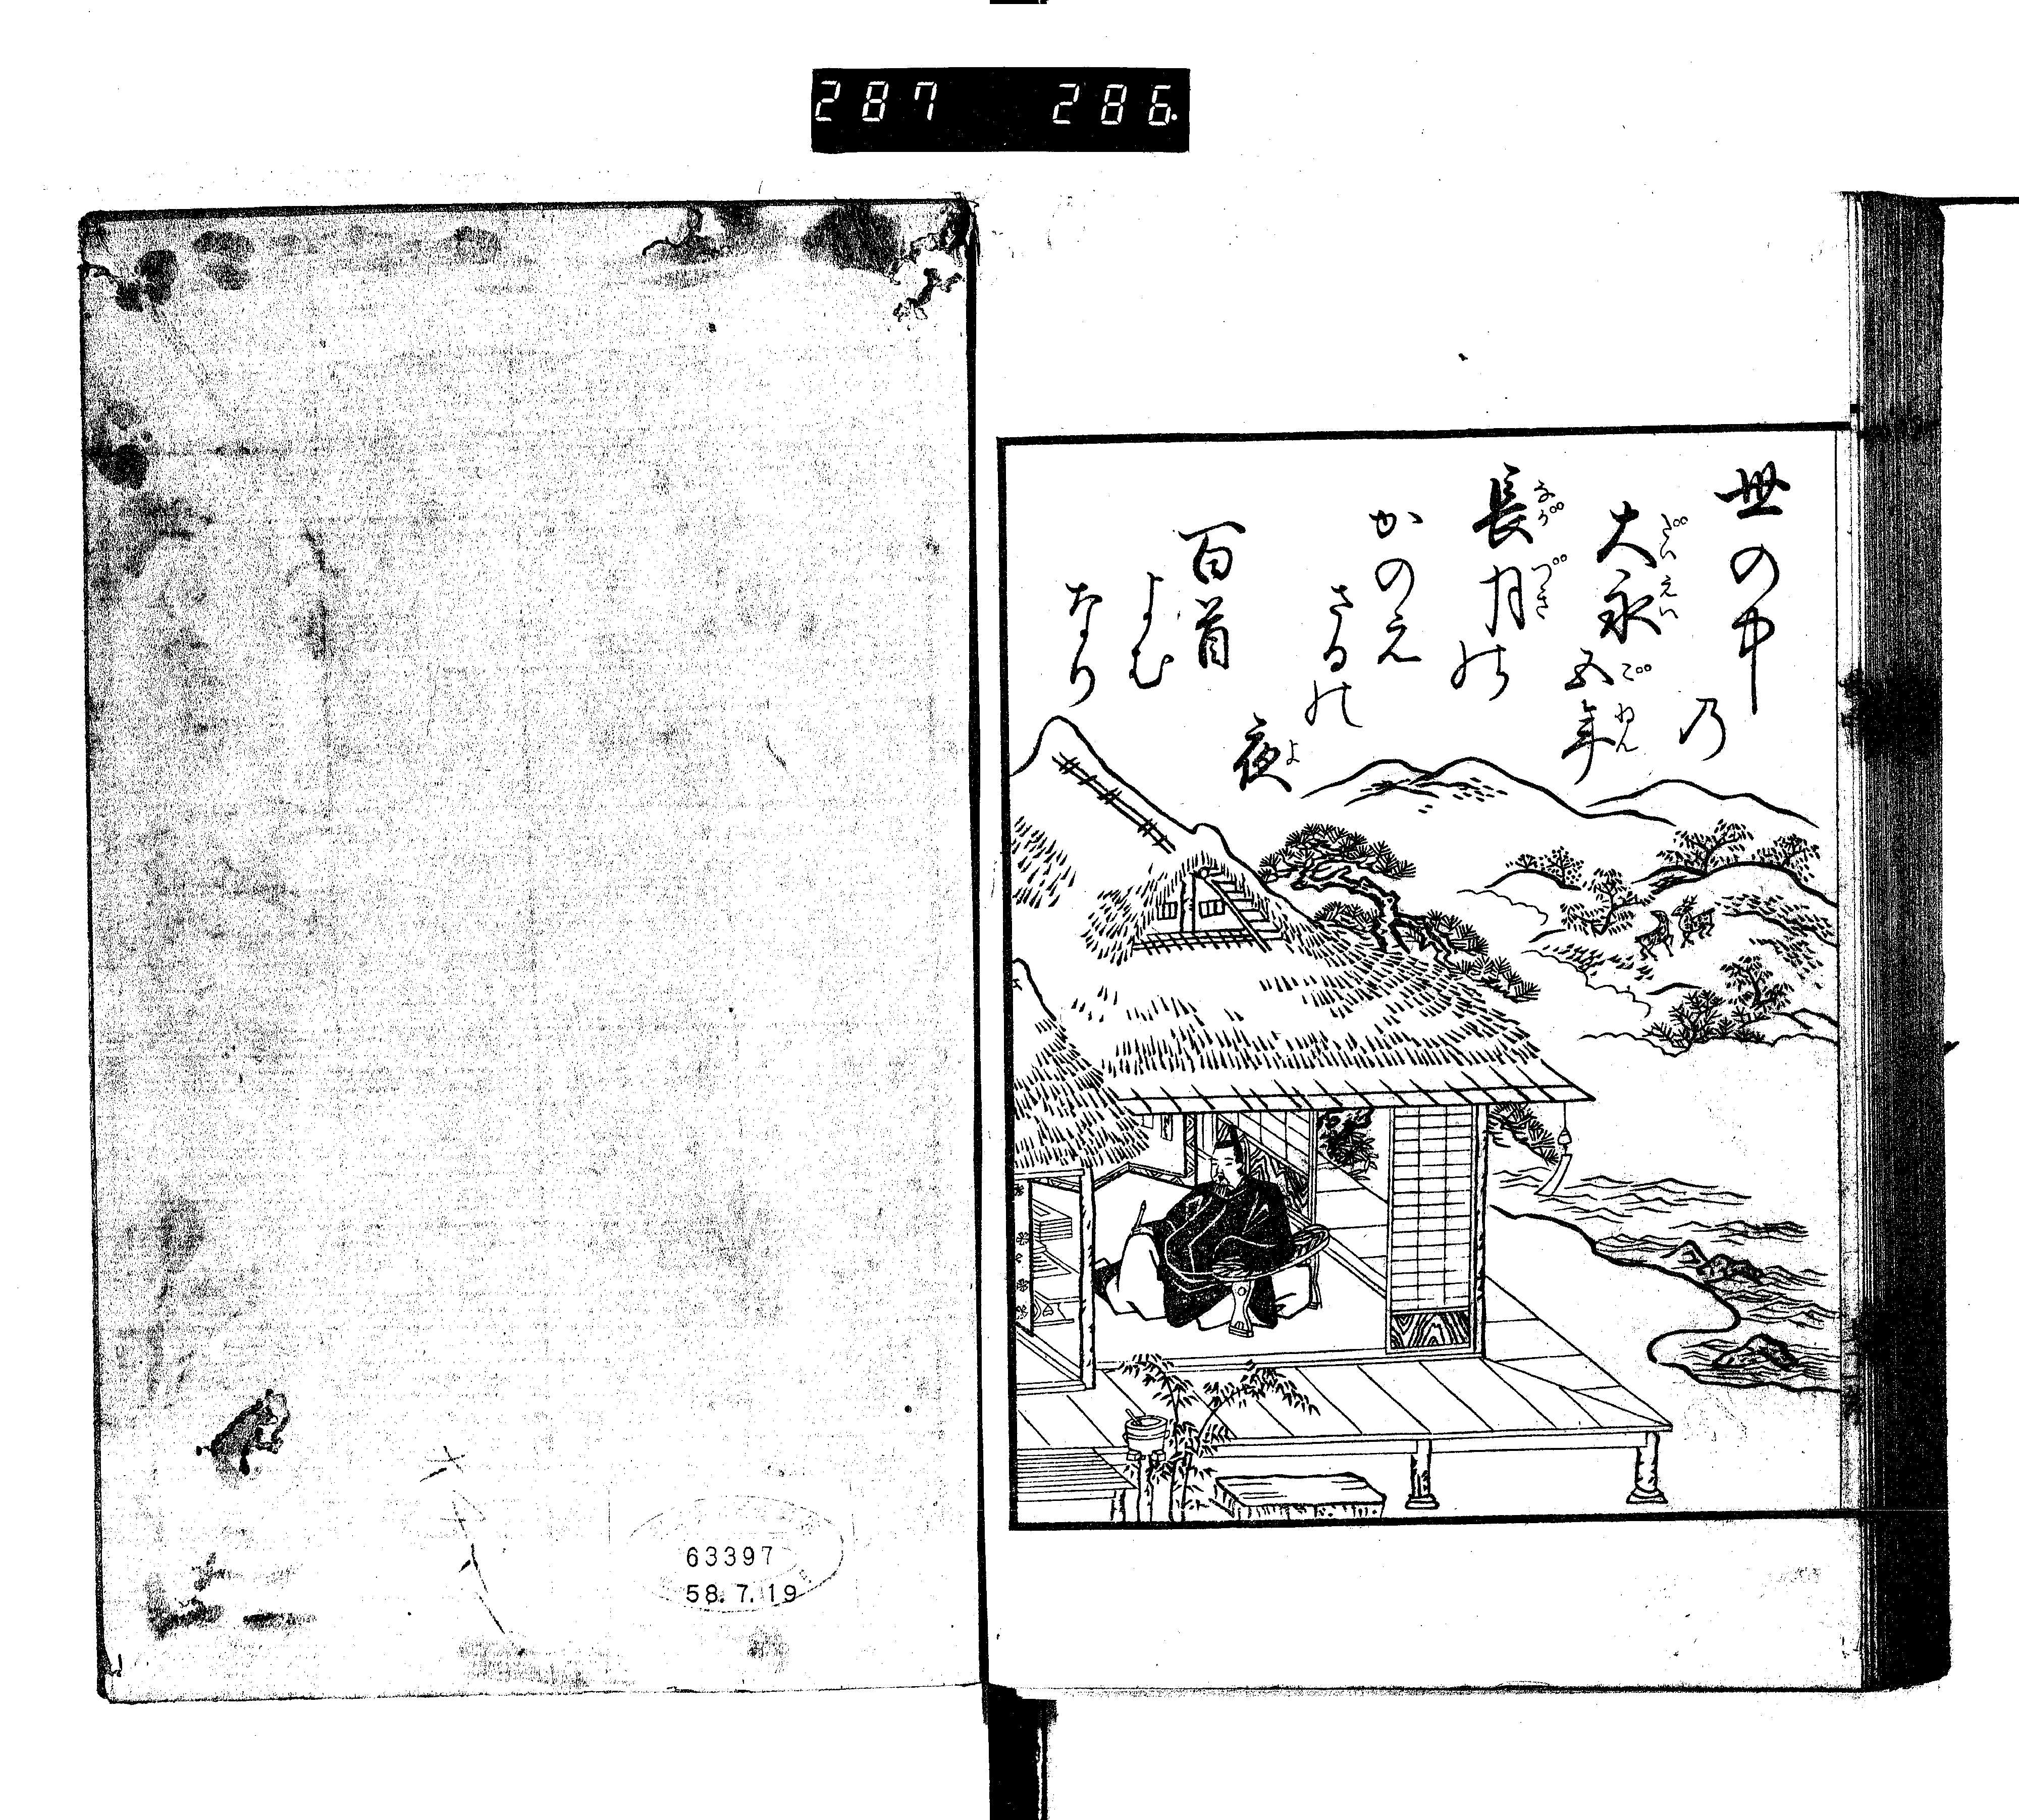 287 286
世の中乃
大永五年
だいえいごねん
長月の
ながづき
かのえ
さるの
夜
よ
百首
よむ
なり
63397
58.7.19